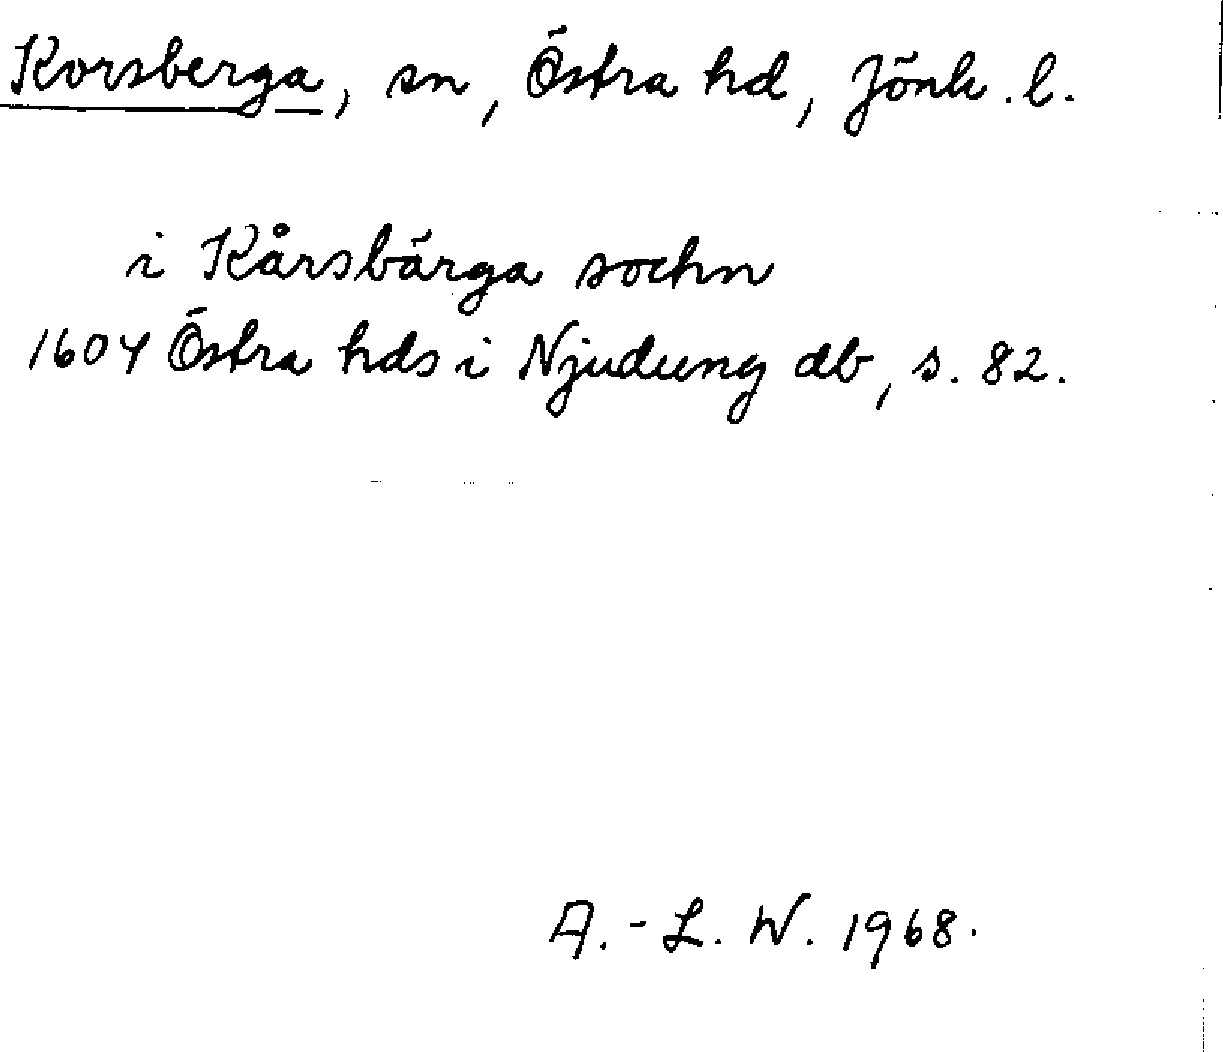 Korsberga, sn, Östra hd, Jönk. l.
i Kårsbärga sochn
1604 Östra hds i Njudung db, s. 82.
A.-L. W. 1968.